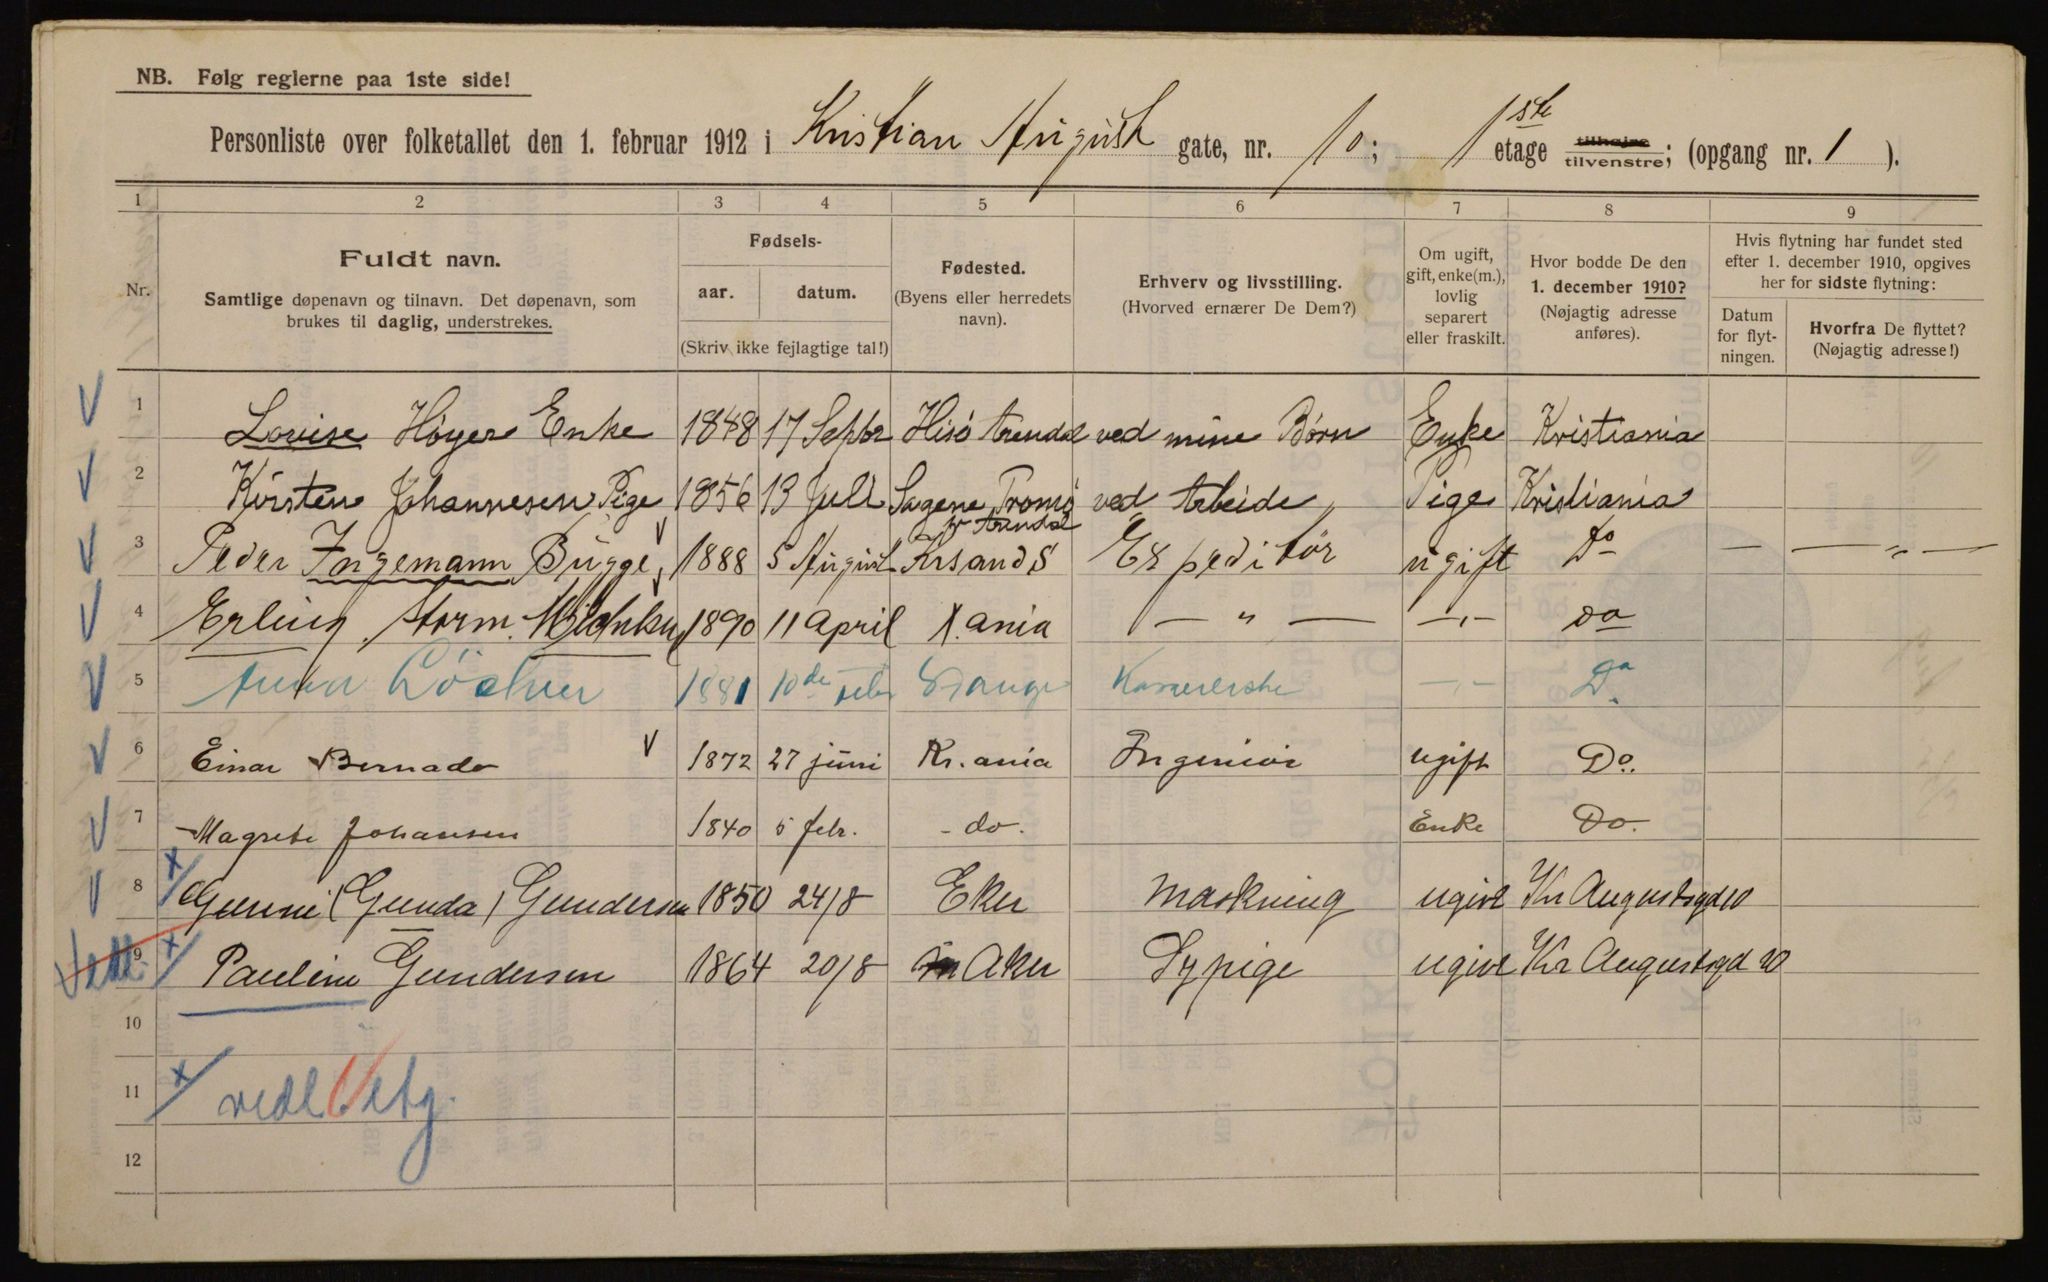 NB. Følg reglerne paa 1ste side!
Personliste over folketallet den 1. februar 1912 i Kristian August gate, nr. 10; 1ste etage tilhøjre tilvenstre; (opgang nr. 1 ).
1 2 3 4 5 6 7 8 9
Nr.
Fuldt navn.
Samtlige døpenavn og tilnavn. Det døpenavn, som
brukes til daglig, understrekes.
Fødsels-
aar. datum.
(Skriv ikke fejlagtige tal!)
Fødested.
(Byens eller herredets
navn).
Erhverv og livsstilling.
(Hvorved ernærer De Dem?)
Om ugift,
gift, enke(m.),
lovlig
separert
eller fraskilt.
Hvor bodde De den
1. december 1910?
(Nøjagtig adresse
anføres).
Hvis flytning har fundet sted
efter 1. december 1910, opgives
her for sidste flytning:
Datum
for flyt-
ningen.
Hvorfra De flyttet?
(Nøjagtig adresse!)
1 Lovise Höyer Enke 1848 17 Septbr Hisö Arendal ved mine Børn Enke Kristiania
2 Kirsten Johannesen Pige 1856 13 Juli Sagene Tromö pr Arendal ved Arbeide Pige Kristiania
3 Peder Ingemann Bugge 1888 5 August Krsand S Expeditør ugift Do — — „ —
4 Erling Storm 1890 11 april K.ania — „ — —„— Do
5 Anna 1881 10de febr Stange —„— Do
6 Einar Bernado 1872 27 juni Kr.ania Ingeniør ugift Do.
7 Magrete Johansen 1840 5 febr. - do. Enke Do.
8 Gunni (Gunda) Gundersen 1850 24/8 Eker Maskning ugivt Kr Augustsgd 10
9 Pauline Gundersen 1864 20/8 Aker Sypige ugivt Kr Augustsgd 10
10
11
12